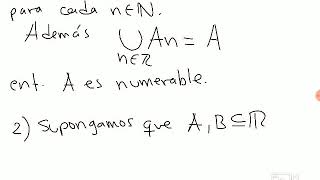 para cada n∈ℕ.
Además ⋃ An = A
n∈ℝ
ent. A es numerable.
2) Supongamos que A, B ⊆ ℝ